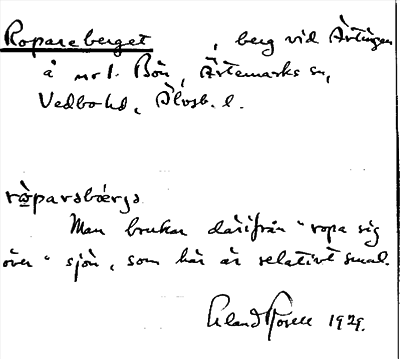 Ropareberget, berg vid Ärtingen
å nr 1. Bön, Ärtemarks sn,
Vedbo hd, Älvsb. l.
Man brukar därifrån "ropa sig
över" sjön, som här är relativt smal.
Erland Rosell 1929.